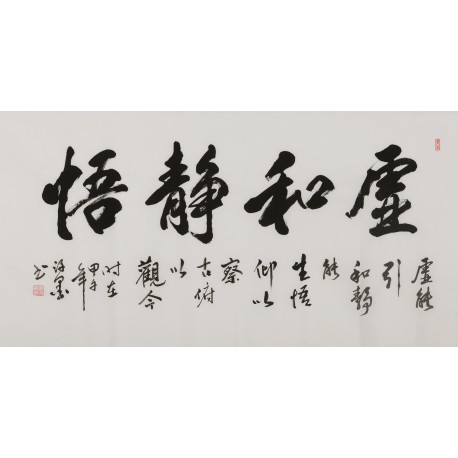 虚和静悟
虚能
引
和静
能
生悟
仰以
察
古俯
以
观今
时在
甲午
年